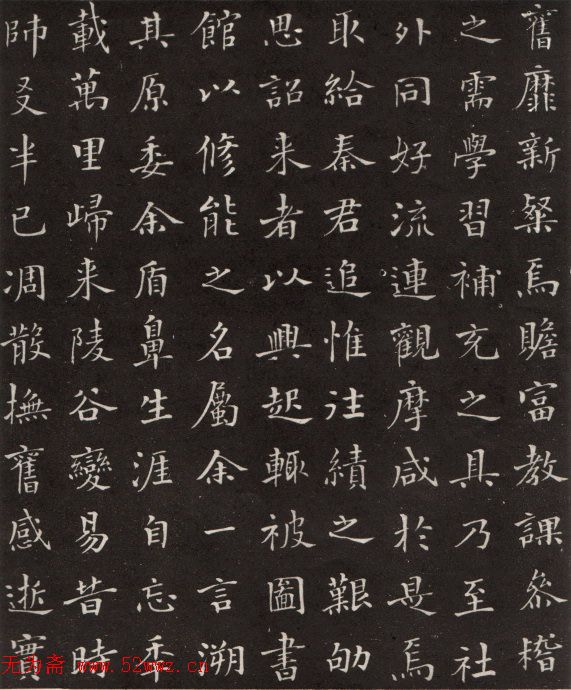 舊靡新粲焉贍富教課叅稽
之需學習補充之具乃至社
外同好流連觀摩咸於是焉
取給秦君追惟往績之艱劬
思詔来者以興起輒被圖書
館以修能之名屬余一言溯
其原委余盾鼻生涯自忘秊
載萬里歸来陵谷變易昔時
師友半已凋散撫舊感逝實
无为斋 www.52wwz.cn